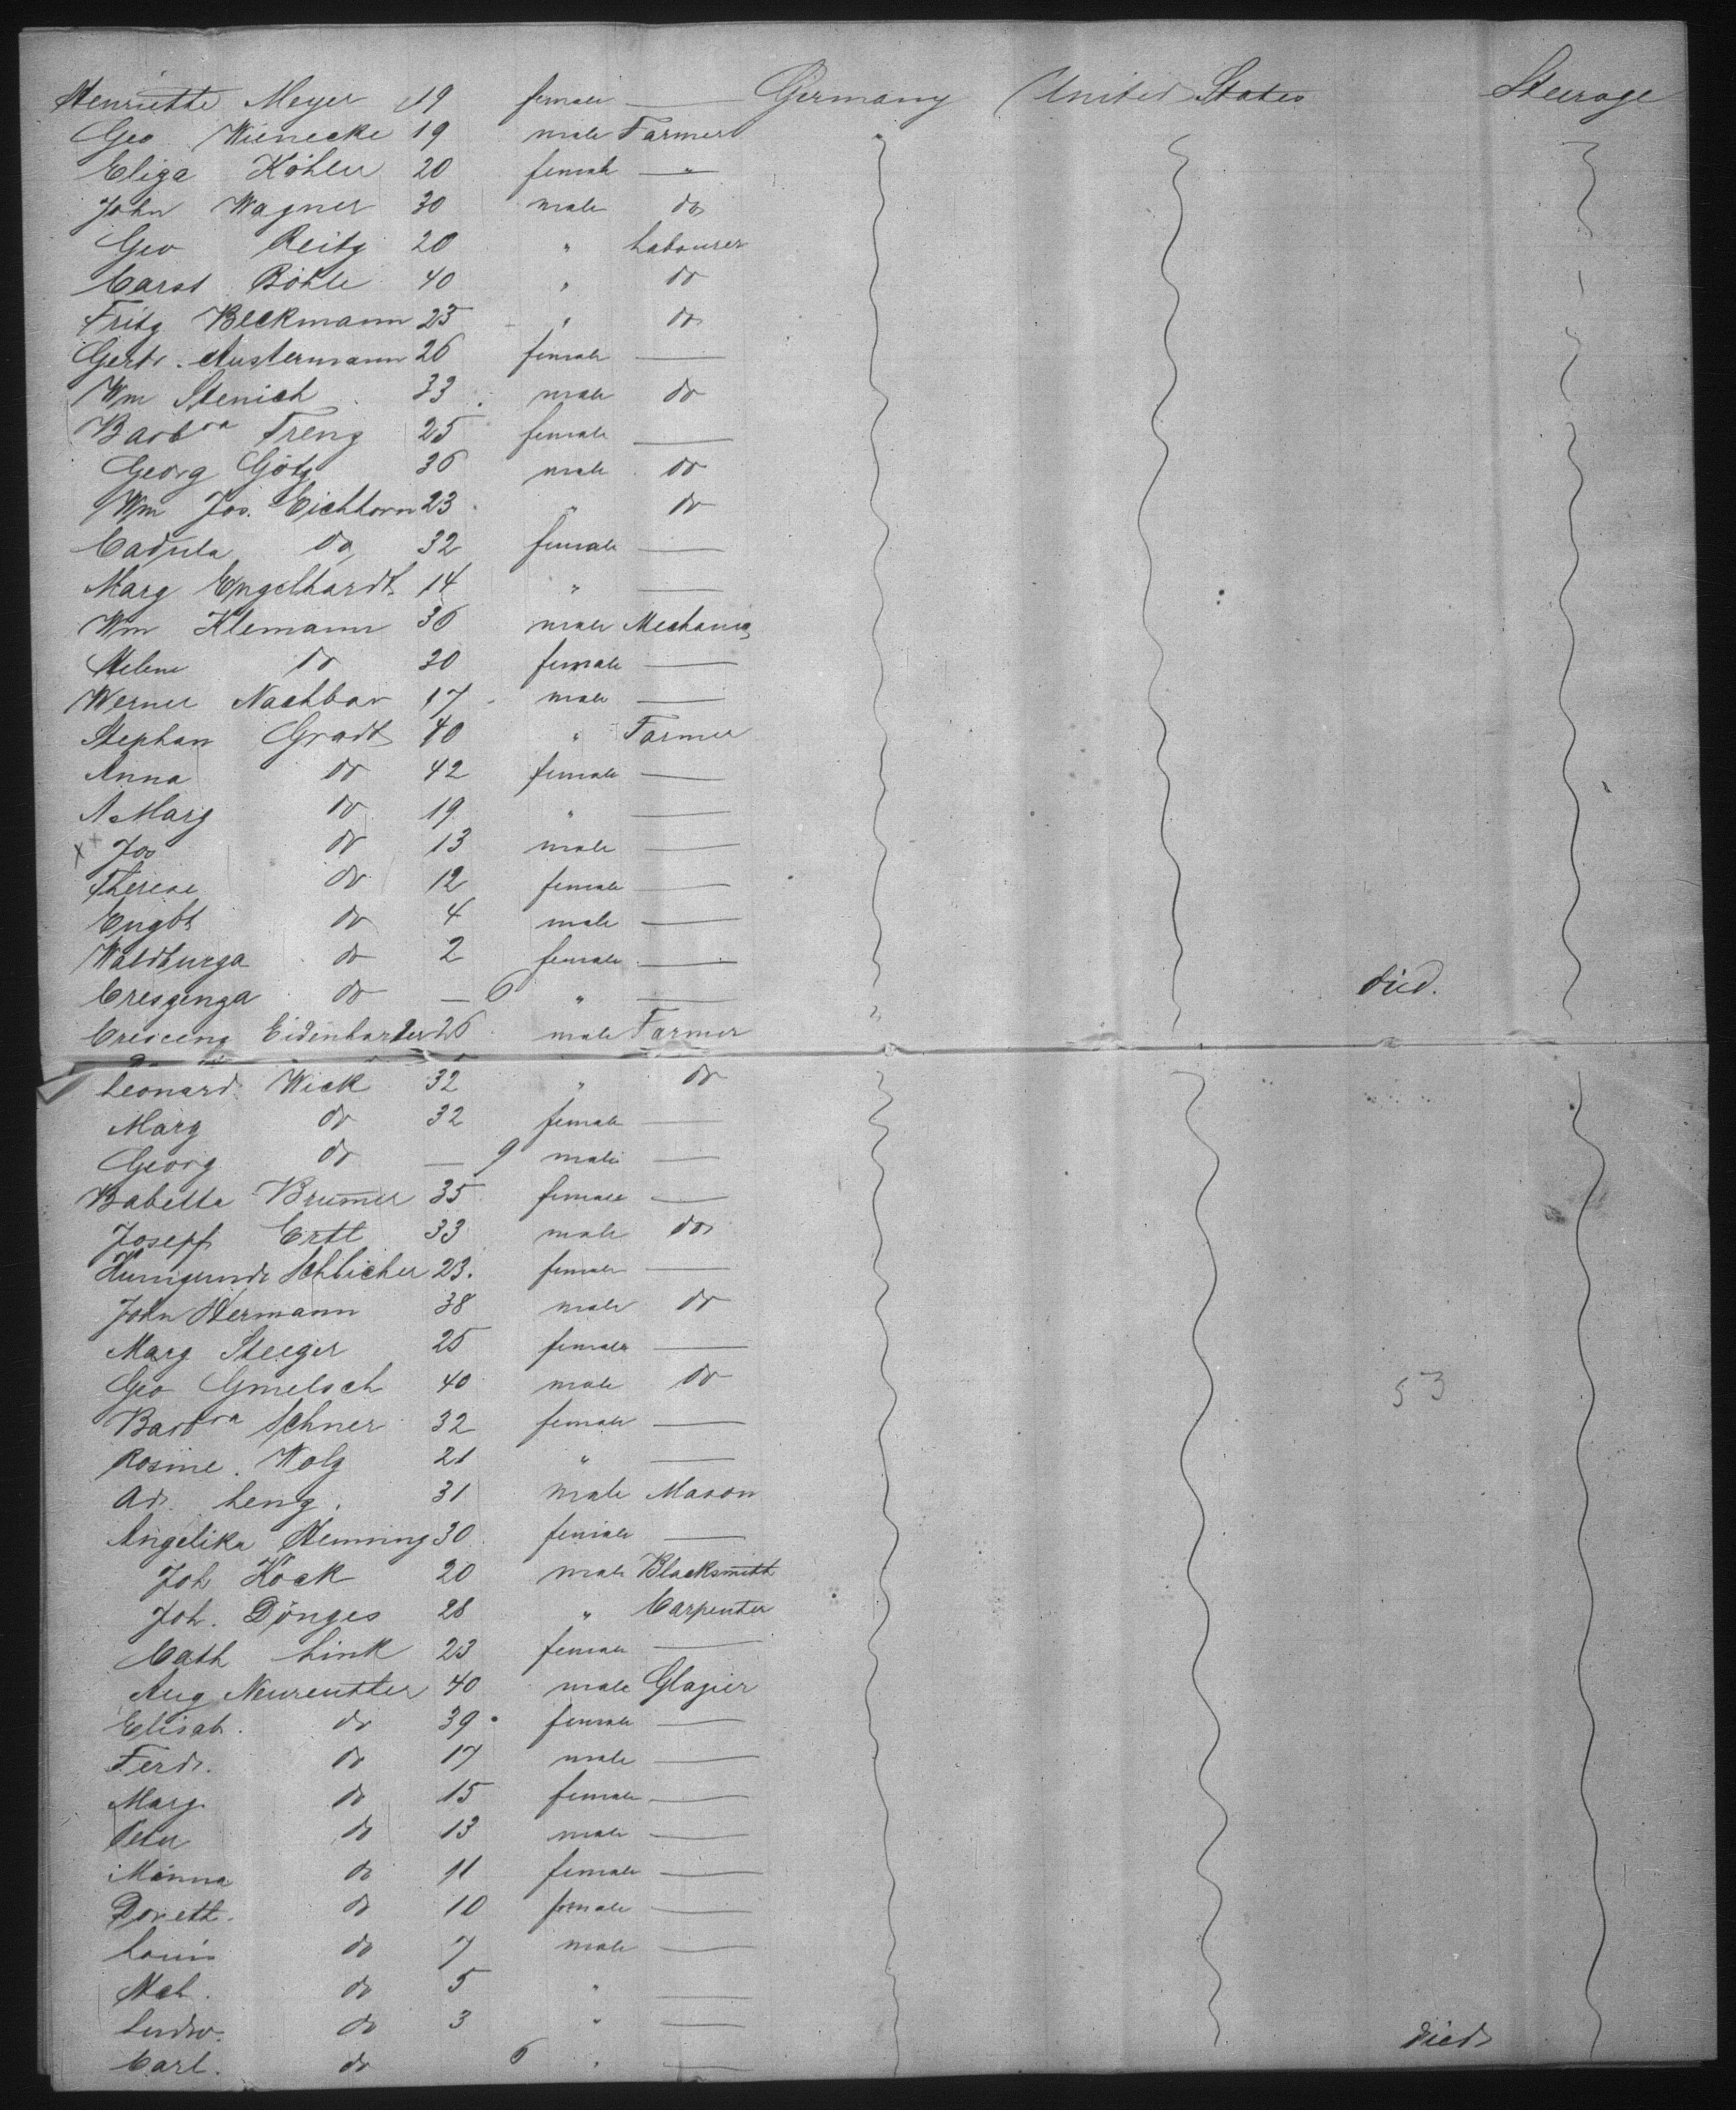 Henriette Meyer 19 female — Germany United States Steerage
Geo Wienecke 19 male Farmer
Eliza Köhler 20 female — "
John Wagner 30 male do
Geo Reitz 20 " Labourer
Carst Böhle 40 " do
Fritz Beckmann 25 " do
Gertr. Austermann 26 female —
Wm Stenich 33 male do
Barbra Treng 25 female —
Georg Götz 36 male do
Wm Jos. Eichhorn 23 " do
do 32 female —
Marg Engelhardt 14 " —
Wm Klemann 36 male Mechanic
Helene do 30 female —
Werner Nachbar 17 male —
Stephan Gradt 40 " Farmer
Anna do 42 female —
A Marg do 19 " —
x Jos do 13 male —
Therese do 12 female —
Engbt do 4 male —
Waldburga do 2 female —
Creszenza do — 6 " — died.
Crescenz Eidenharter 26 male Farmer
Leonard Wick 32 " do
Marg do 32 female —
Georg do — 9 male —
Babetta Brumer 35 female —
Josepf Ertl 33 male do
Kunigunde Schlicher 23. female —
John Hermann 38 male do
Marg Steeger 25 female —
Geo Gmelsch 40 male do 53
Barbra Schner 32 female —
Rosine Wolz 21 " —
Ad. Leng. 31 male Mason
Angelika Henning 30 female —
Joh Kock 20 male Blacksmith
Joh. Dönges 28 " Carpenter
Cath Link 23 female —
Aug Neureutter 40 male Glazier
Elisab. do 39 female —
Ferd. do 17 male —
Marg. do 15 female —
Peter do 13 male —
Minna do 11 female —
Doreth. do 10 female —
Louis do 7 male —
do 5 " —
Ludw. do 3 " — died
Carl. do 6 " —